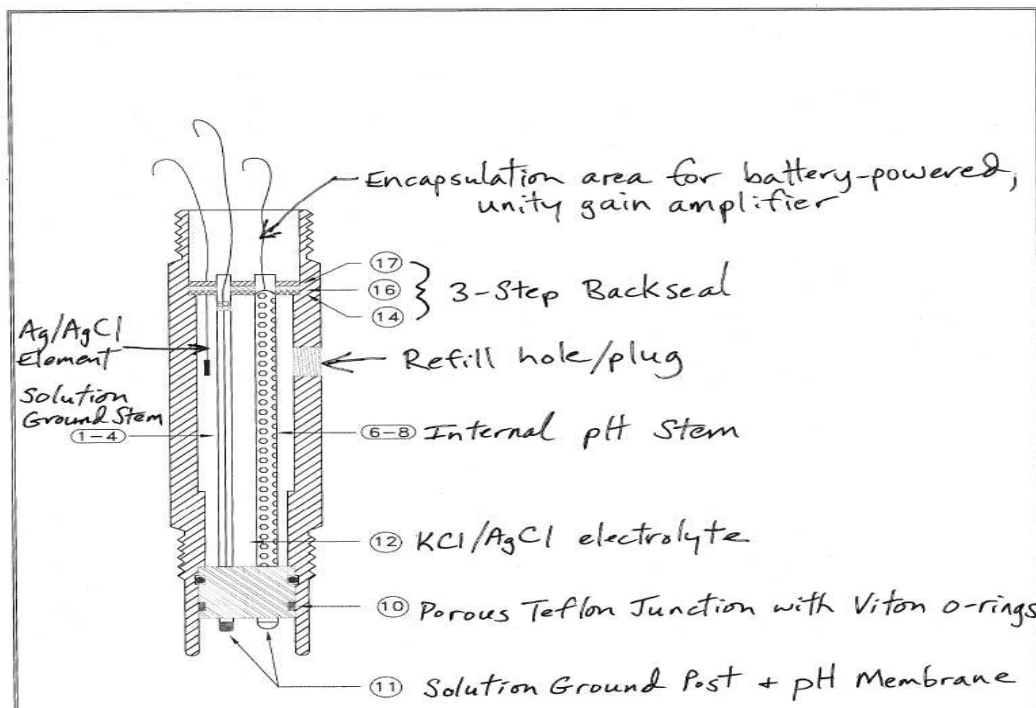 Encapsulation area for battery-powered,
unity gain amplifier
17
16 3-Step Backseal
14
Ag/AgCl
Element
Refill hole/plug
Solution
Ground Stem
1-4
6-8 Internal pH Stem
12 KCl/AgCl electrolyte
10 Porous Teflon Junction with Viton o-rings
11 Solution Ground Post + pH Membrane